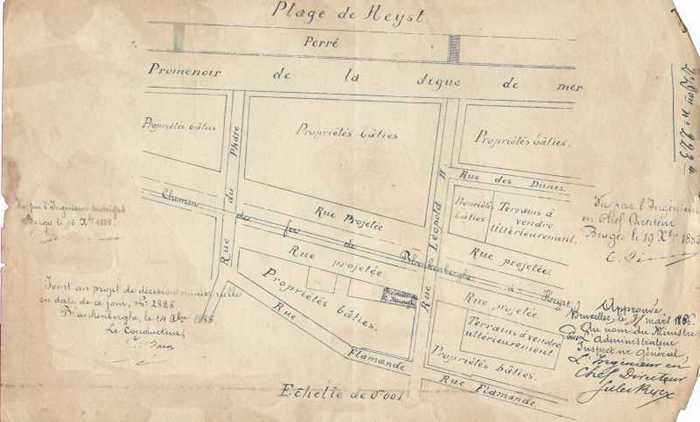 Plage de Heyst
Perré
Promenoir de la digue de mer
Propriétés bâties
Propriétés bâties
Propriétés bâties.
Rue du Phare
Rue Léopold II
Rue des Dunes
Propriétés
bâties
Terrains à
vendre
ultérieurement.
Chemin de fer de Blankenberghe à Heyst
Rue Projetée
Rue projetée.
Rue projetée
Rue projetée
Propriétés bâties.
Terrains à vendre
ultérieurement
Propriétés
bâties.
Rue Flamande
Rue Flamande
Echelle de 0.001
Vu par l'Ingénieur
en Chef Directeur
Bruges, le 19 Xbre
Joint au projet de décision ministérielle
en date de ce jour, No 2828
Blankenberghe, le 14 Xbre
Le Conducteur,
Approuvé
Bruxelles, le mars
Au nom du Ministre
Pour Administrateur
Inspecteur Général
L'Ingénieur en
Chef Directeur